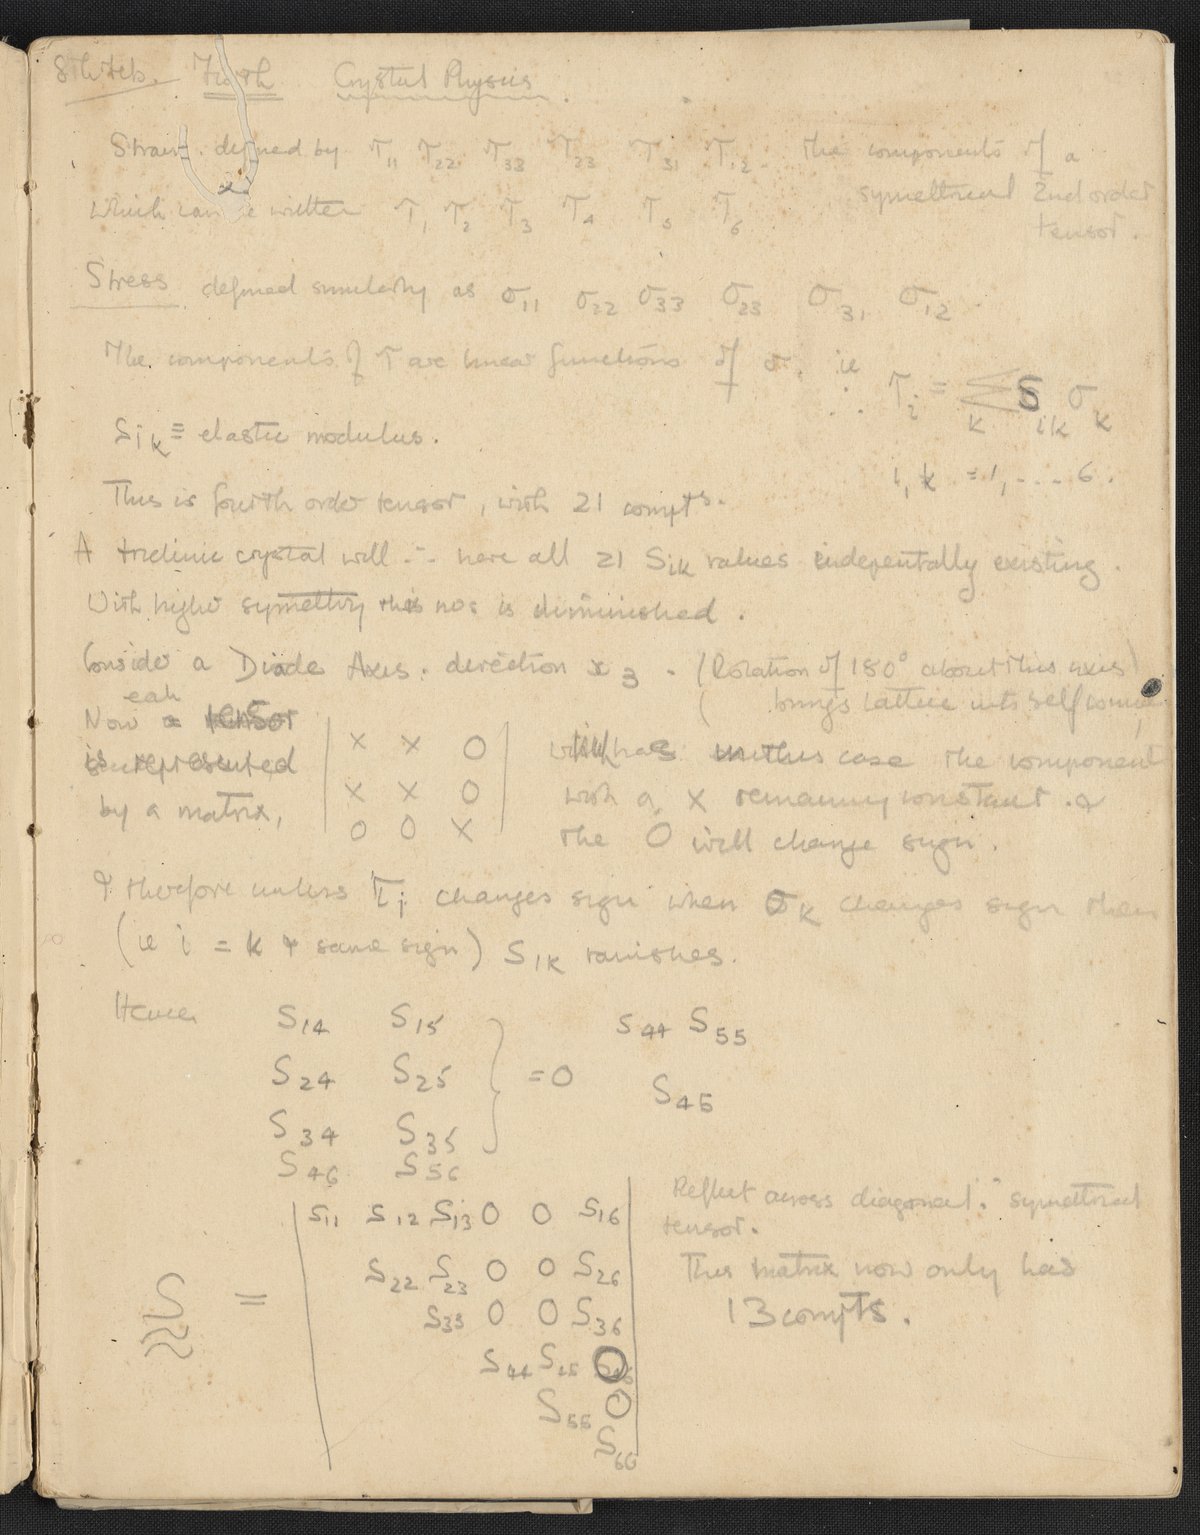 8th Feb. Fourth Crystal Physics.
Strain. defined by τ11 τ22 τ33 τ23 τ31 τ12 the components of a
symettrical 2nd order
tensor.
which can be written τ1 τ2 τ3 τ4 τ5 τ6
Stress defined similarly as σ11 σ22 σ33 σ23 σ31 σ12.
The components of τ are linear functions of σ. ie
∴ τi = Σk Sik σk
Sik ≡ elastic modulus.
i, k = 1, ... 6.
This is fourth order tensor, with 21 compts.
A triclinic crystal will ∴ have all 21 Sik values indepentally existing.
With higher symettry this nos is diminished.
Consider a Diade Axes. direction x3 - (Rotation of 180° about this axis)
( brings lattice into self
Now each tensor
is represented
by a matrix,
| x x 0 |
| x x 0 |
| 0 0 x |
has in this case the component
with a x remaining constant. &
the 0 will change sign.
& therefore unless τi changes sign when σk changes sign then
(ie i = k & same sign) Sik vanishes.
Hence S14 S15 S44 S55
S24 S25 } = 0 S45
S34 S35
S46 S56
S11 S12 S13 0 0 S16
S22 S23 0 0 S26
S = S33 0 0 S36
S44 S45 0
S55 0
S66
Reflect across diagonal ∵ symettrical
tensor.
This matrix now only has
13 compts.